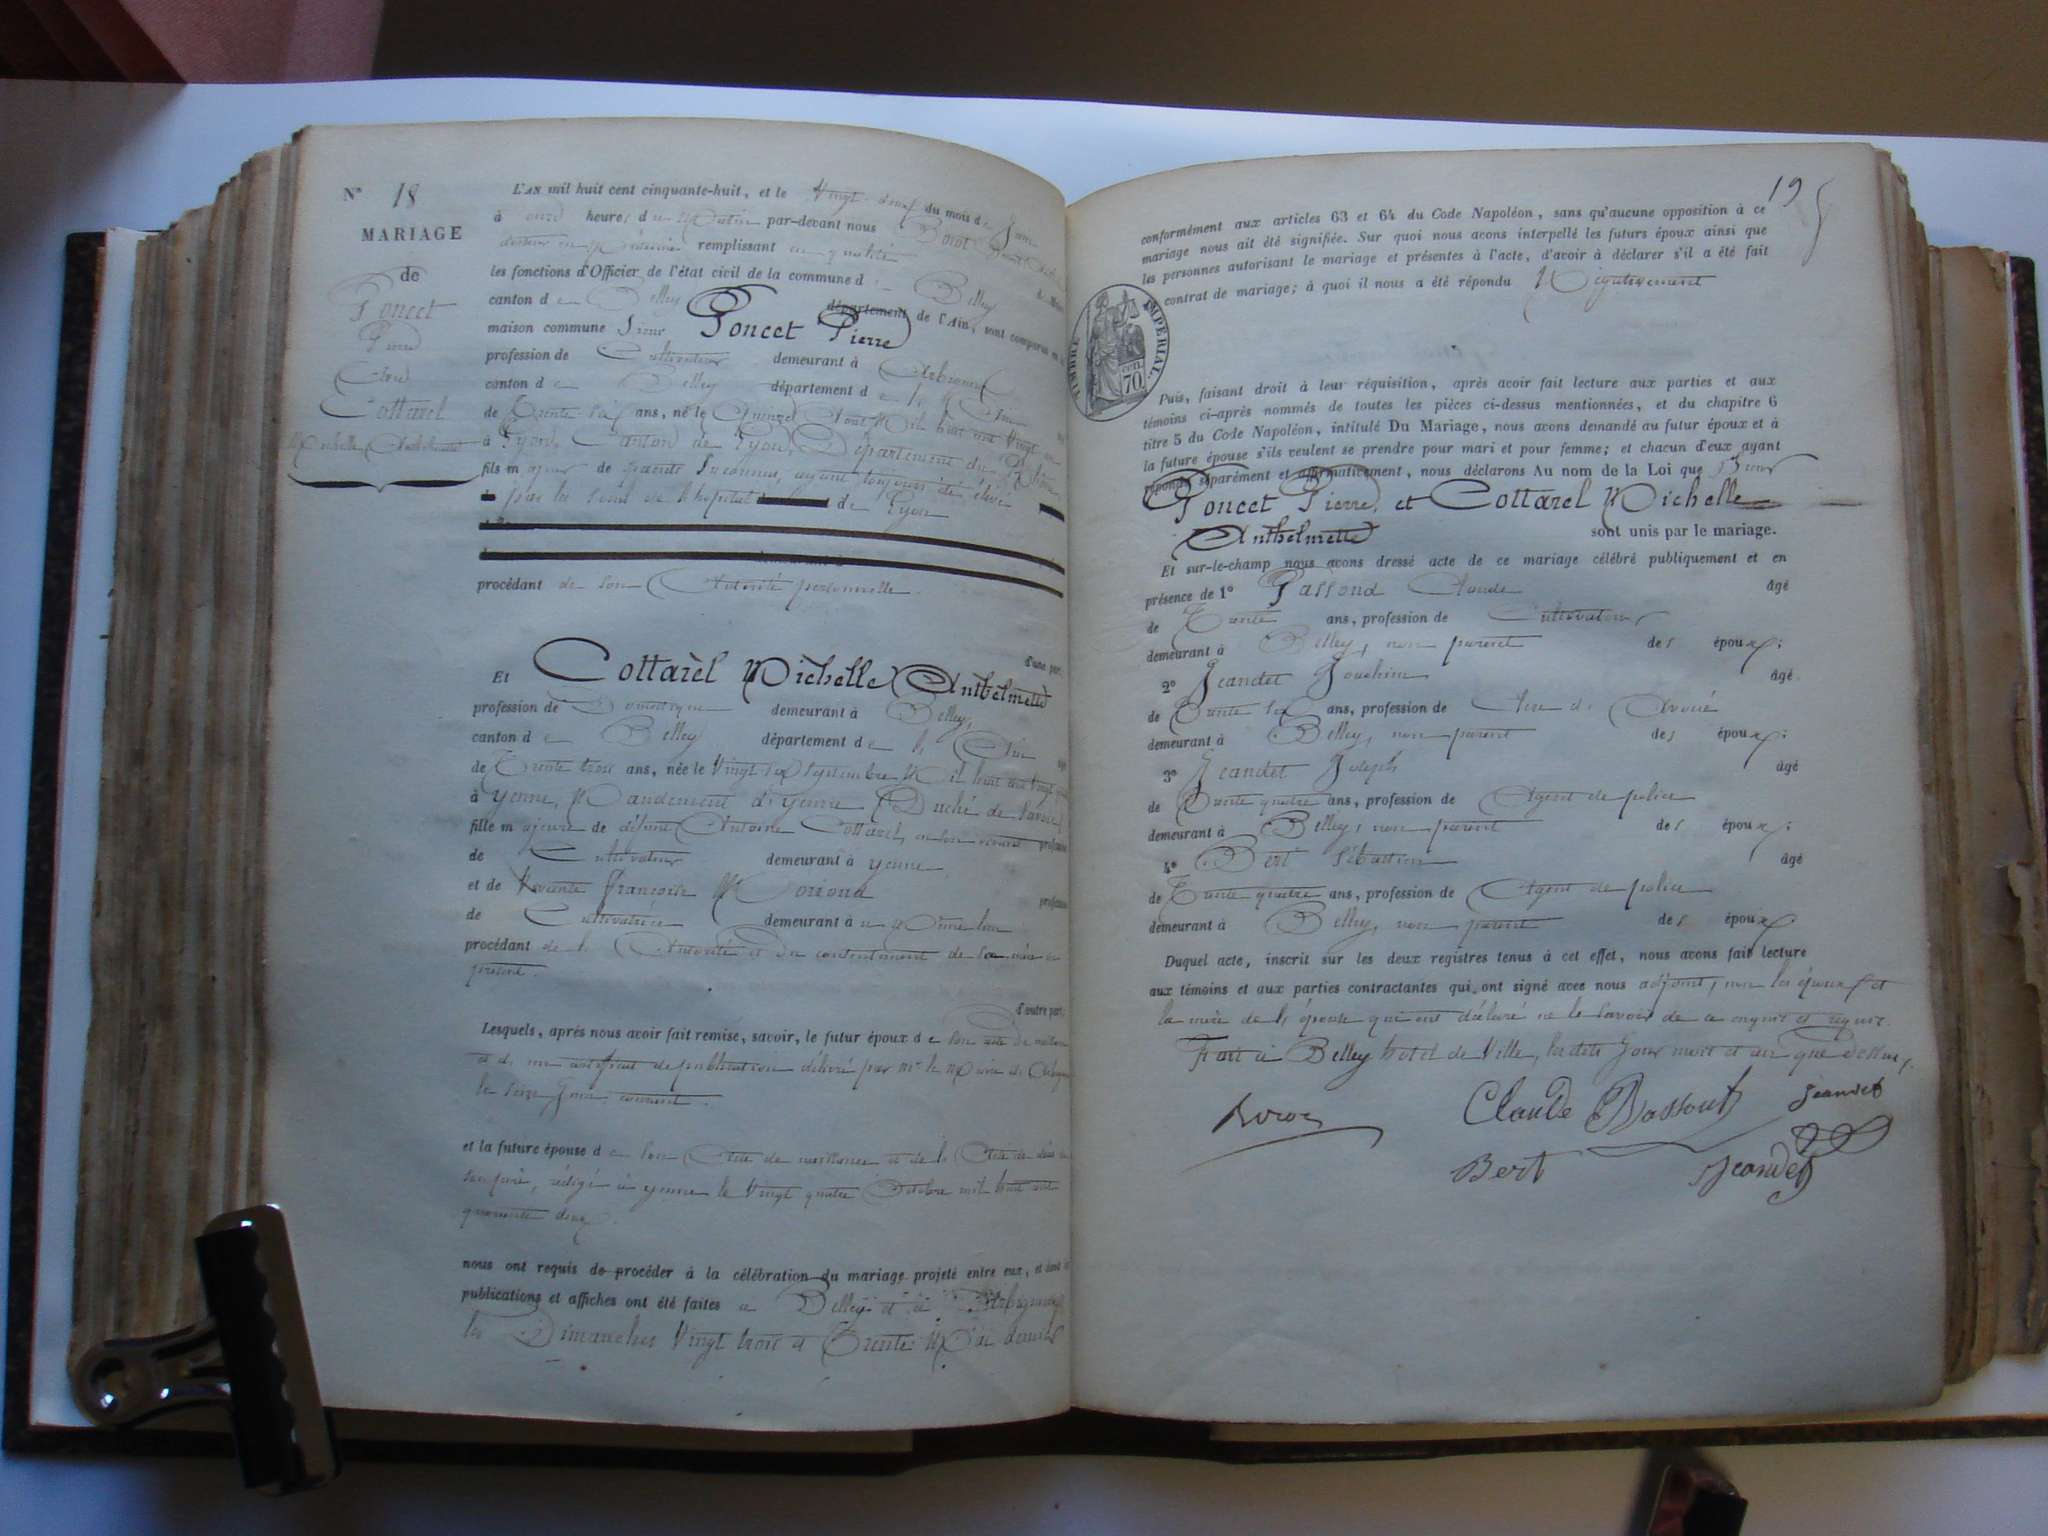 N° 18
MARIAGE
de
Poncet
Pierre
Et
Cottarel
Michelle Anthelmette
L'AN mil huit cent cinquante-huit, et le Vingt du mois de Juin
à onze heures du Matin par-devant nous
remplissant en qualité
les fonctions d'Officier de l'état civil de la commune de Belley
canton de Belley département de l'Ain, sont comparus en la
maison commune Sieur Poncet Pierre
profession de Cultivateur demeurant à Arbignieu
canton de Belley département de l'Ain
de Trente six ans, né le Quinze Août Mil huit cent Vingt un
à Lyon, Canton de Lyon, Département du Rhône,
fils majeur de parents Inconnus, ayant toujours été élevé
par les soins de l'hôpital de Lyon
demeurant à
procédant de son Autorité personnelle
d'une part,
Et Cottarel Michelle Anthelmette
profession de Domestique demeurant à Belley,
canton de Belley département de l'Ain
de Trente trois ans, née le Vingt six Septembre Mil huit cent Vingt
à Yenne, Mandement d'Yenne (Duché de Savoie)
fille majeure de défunt Antoine Cottarel, en son vivant profession
de Cultivateur demeurant à Yenne,
et de Vivante Françoise Moriond profession
de Cultivatrice demeurant à
procédant de l'Autorité et du consentement de sa mère ici
présente.
d'autre part;
Lesquels, après nous avoir fait remise, savoir, le futur époux de son acte de naissance
et de un certificat de publication délivré par Mr le Maire de Arbignieu
le seize Juin courant.
et la future épouse de son Acte de naissance et de l'Acte de décès de
son père, rédigé à Yenne le Vingt quatre Octobre mil huit cent
quarante deux.
nous ont requis de procéder à la célébration du mariage projeté entre eux, et dont les
publications et affiches ont été faites à Belley et à Arbignieu
les Dimanches Vingt trois et Trente Mai dernier
19
conformément aux articles 63 et 64 du Code Napoléon, sans qu'aucune opposition à ce
mariage nous ait été signifiée. Sur quoi nous avons interpellé les futurs époux ainsi que
les personnes autorisant le mariage et présentes à l'acte, d'avoir à déclarer s'il a été fait
contrat de mariage; à quoi il nous a été répondu Négativement
TIMBRE IMPÉRIAL
70 cen.
Puis, faisant droit à leur réquisition, après avoir fait lecture aux parties et aux
témoins ci-après nommés de toutes les pièces ci-dessus mentionnées, et du chapitre 6
titre 5 du Code Napoléon, intitulé Du Mariage, nous avons demandé au futur époux et à
la future épouse s'ils veulent se prendre pour mari et pour femme; et chacun d'eux ayant
répondu séparément et affirmativement, nous déclarons Au nom de la Loi que Sieur
Poncet Pierre, et Cottarel Michelle
Anthelmette sont unis par le mariage.
Et sur-le-champ nous avons dressé acte de ce mariage célébré publiquement et en
présence de 1° Claude âgé
de Trente ans, profession de Cultivateur,
demeurant à Belley, non parent des époux;
2° Jeandet Joachim âgé
de Trente six ans, profession de Clerc d'Avoué
demeurant à Belley, non parent des époux;
3° Jeandet Joseph âgé
de Trente quatre ans, profession de Agent de police
demeurant à Belley, non parent des époux;
4° Bert Sébastien âgé
de Trente quatre ans, profession de Agent de police
demeurant à Belley, non parent des époux
Duquel acte, inscrit sur les deux registres tenus à cet effet, nous avons fait lecture
aux témoins et aux parties contractantes qui ont signé avec nous adjoint, non les époux et
la mère de l'épouse qui ont déclaré ne le savoir de ce enquis et requis.
Fait à Belley hôtel de Ville, lesdits Jour mois et an que dessus.
Claude Jeandet
Bert Jeandet